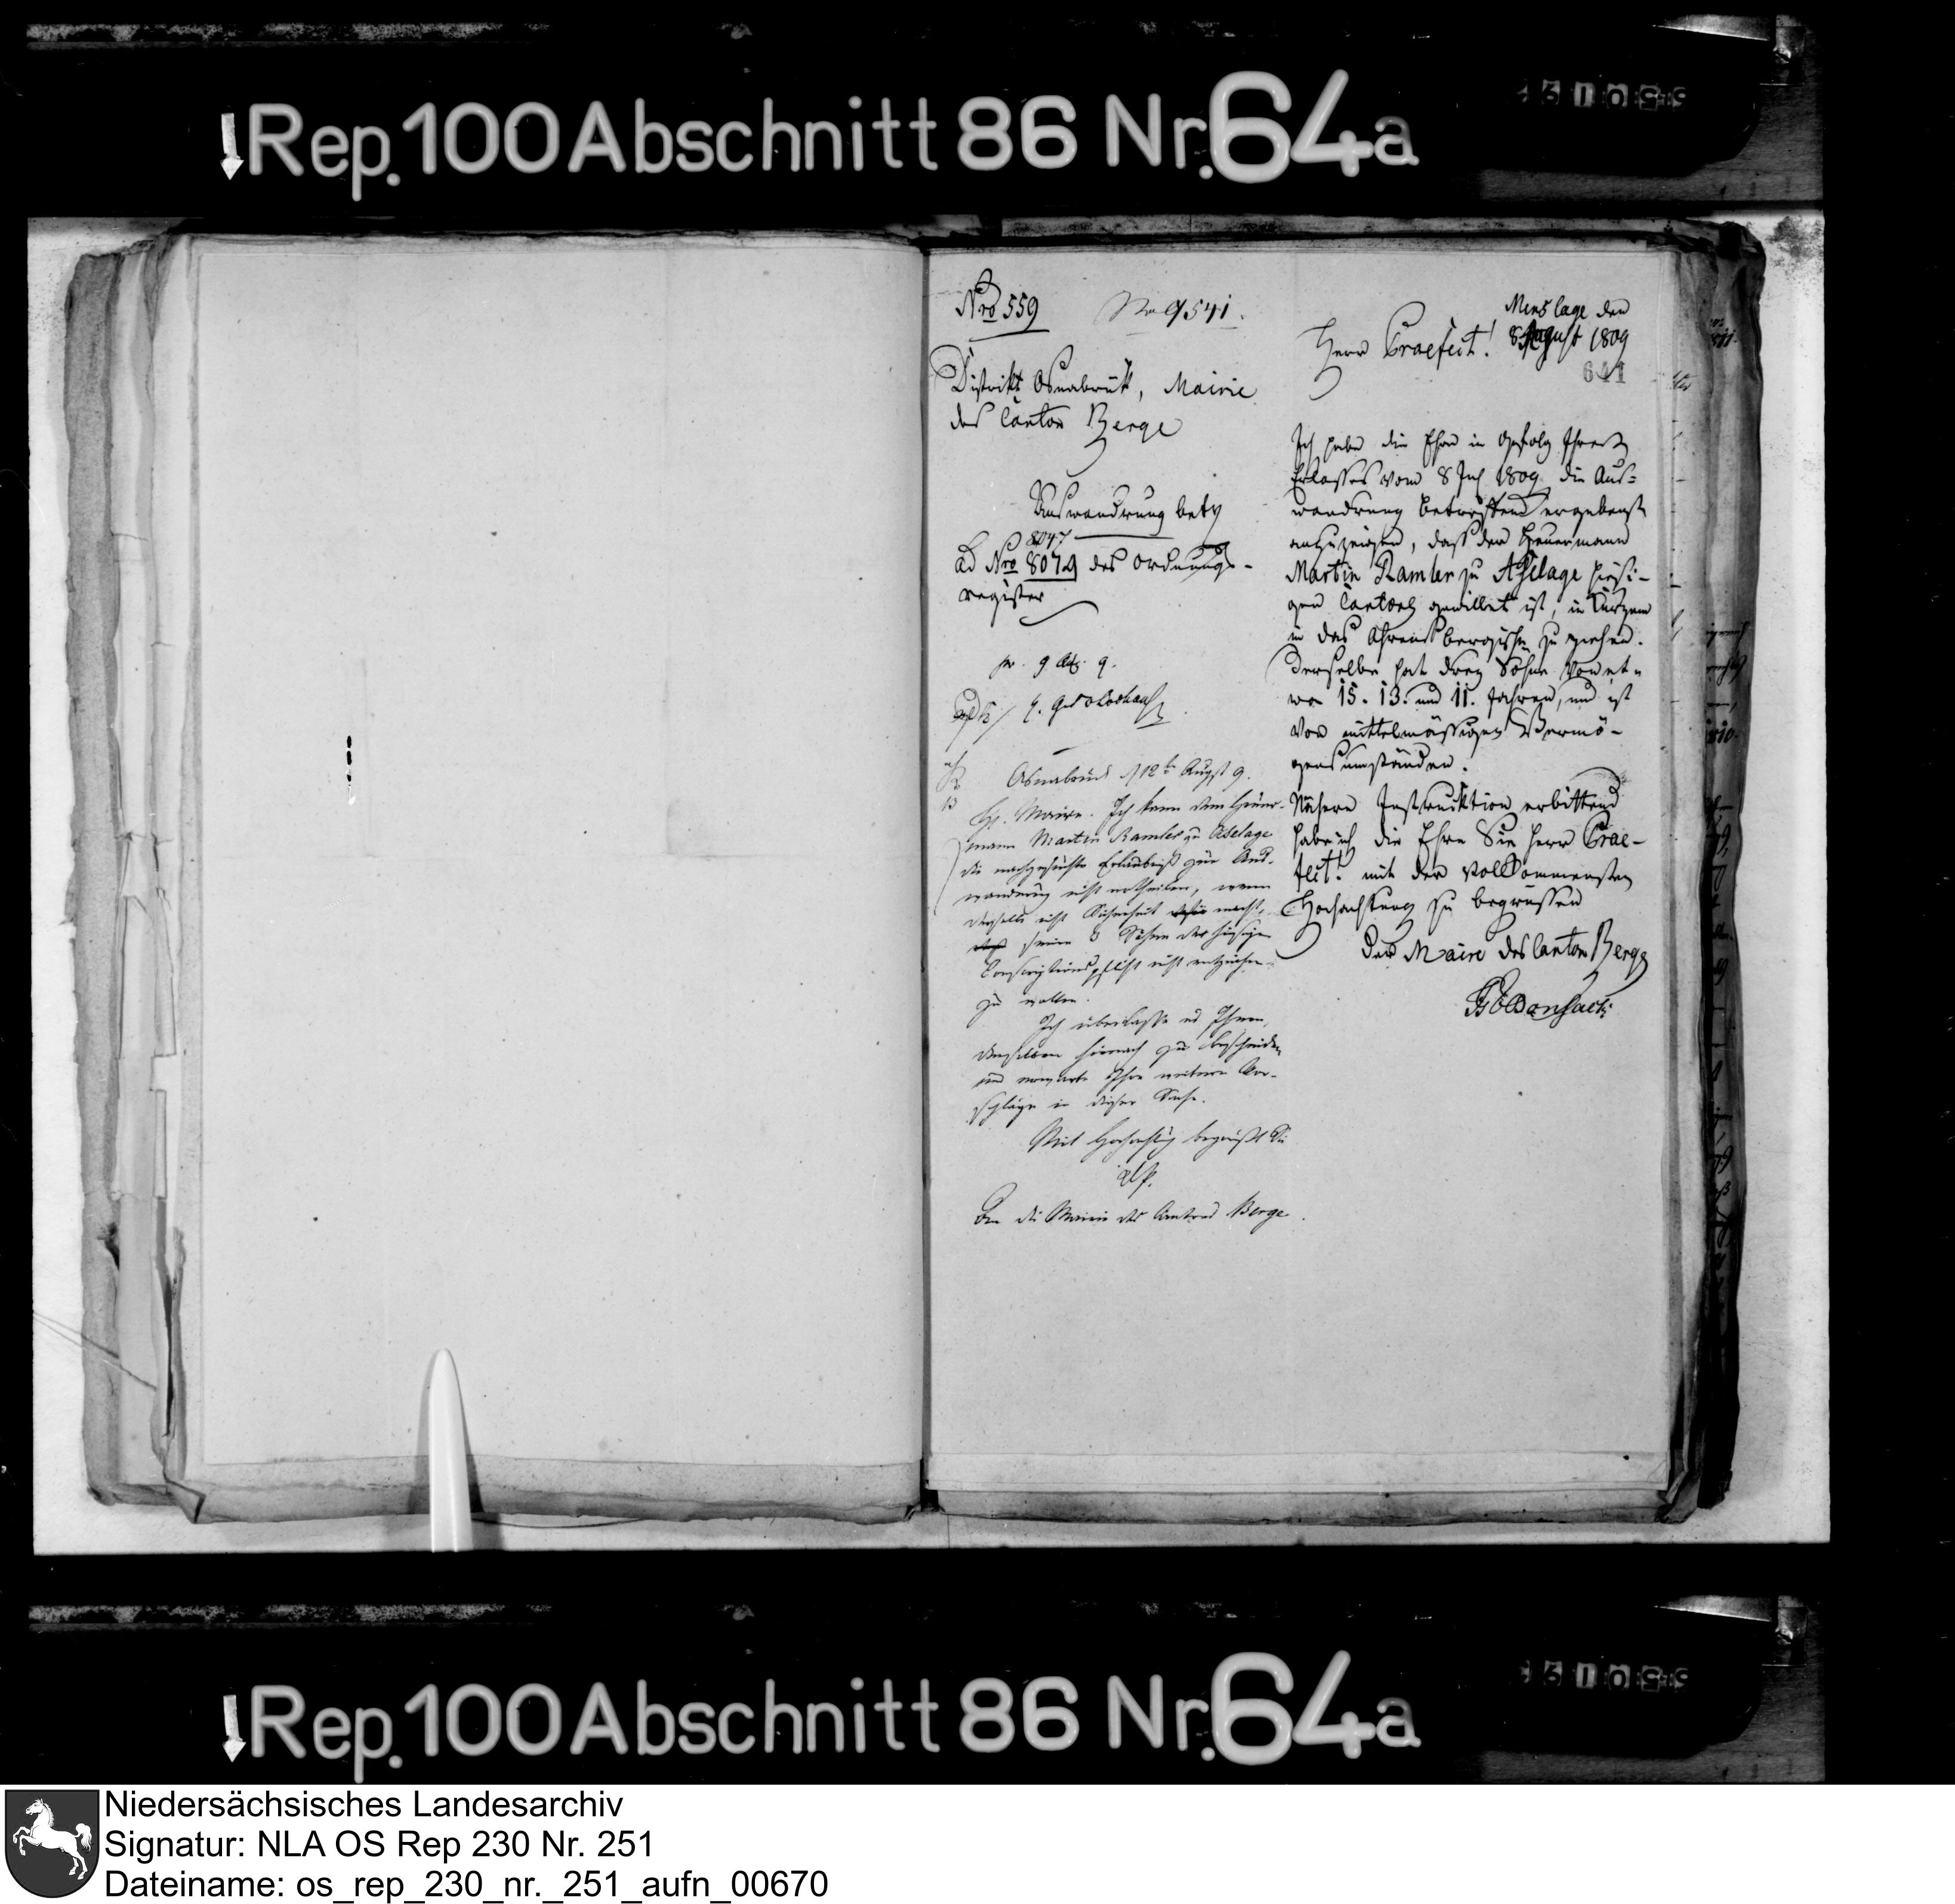 Rep. 100 Abschnitt 86 Nr. 64a
Nro 559
No 9541.
Distrikt Osnabrük, Mairie
des Canton Berge
Auswandrung betr
8047
ad Nro 8079 des Ordnungs-
register
pr. 9 Aug. 9.
Osnabrück d 12t Augst 9.
H. Maire. Ich kann dem Heuer-
mann Martin Ramler zu Aselage
die nachgesuchte Erlaubniß zur Aus-
wanderung nicht ertheilen, wenn
derselbe nicht Sicherheit macht,
seine 3 Söhne der hiesigen
Conscriptionspflicht nicht entziehen
zu wollen.
Ich überlasse es Ihnen,
denselben hiernach zu bescheiden
und erwarte Ihre weitern Vor-
schläge in dieser Sache.
Mit Hochachtung begrüßt Sie
An die Mairie des Cantons Berge.
Menslage den
8 August 1809
Herr Praefect!
641
Ich habe die Ehre in Gefolg Ihres
Erlasses vom 8 Jul 1809 die Aus=
wandrung betreffend ergebenst
anzuzeigen, dass der Heuermann
Martin Ramler zu Aselage hiesi-
gen Cantons gewillet ist, in Kurzem
in das Ahrensbergische zu ziehen.
Derselbe hat drey Söhne von et-
wa 15. 13. und 11. Jahren, und ist
von mittelmässigen Vermö-
gensumständen.
Nähere Instruktion erbittend
habe ich die Ehre Sie Herr Prae-
fect! mit der vollkommensten
Hochachtung zu begrüssen
Der Maire des Canton Berge
Rep. 100 Abschnitt 86 Nr. 64a
Niedersächsisches Landesarchiv
Signatur: NLA OS Rep 230 Nr. 251
Dateiname: os_rep_230_nr._251_aufn_00670